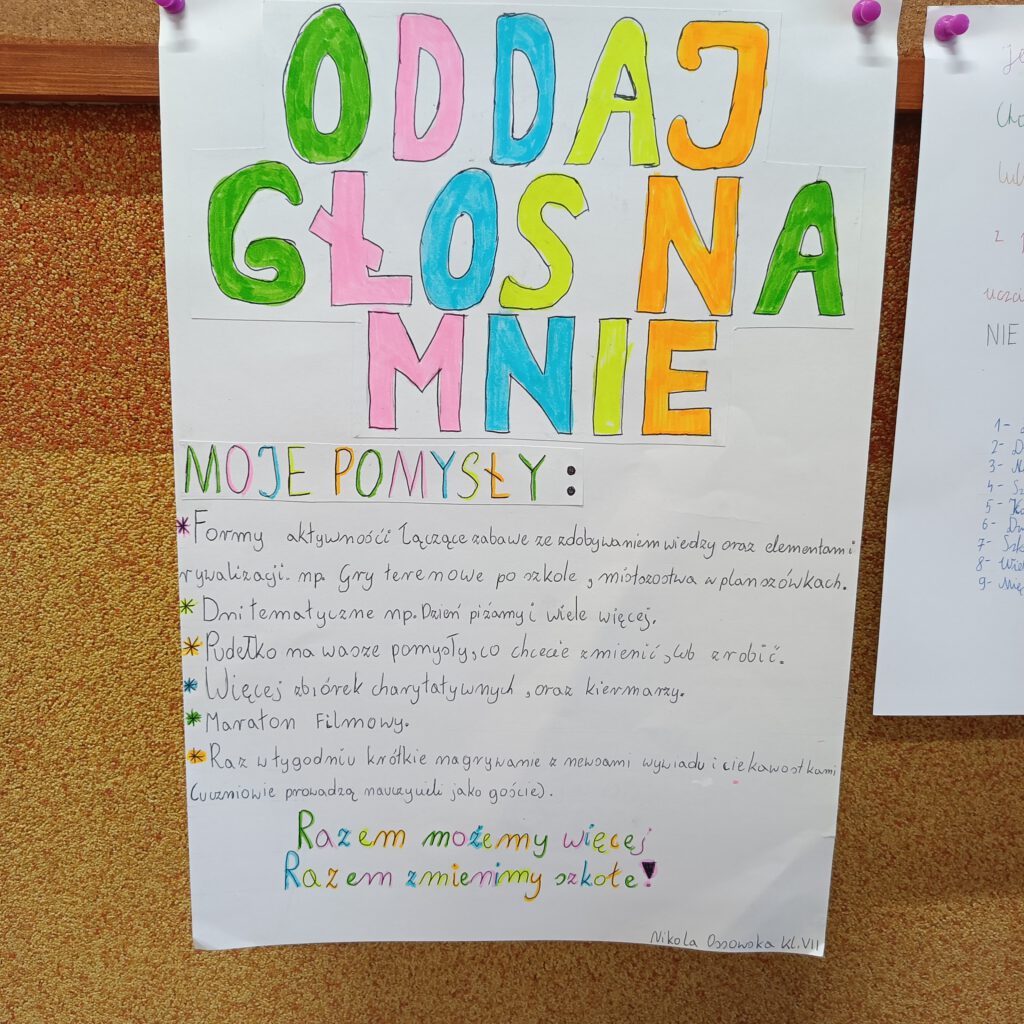 ODDAJ
GŁOS NA
MNIE
MOJE POMYSŁY:
*Formy aktywnośći łączące zabawe ze zdobywaniem wiedzy oraz elementami
rywalizacji. np. Gry terenowe po szkole, mistrzostwa w planszówkach.
*Dni tematyczne np. Dzień piżamy i wiele więcej.
*Pudełko na wasze pomysły, co chcecie zmienić, lub zrobić.
*Więcej zbiórek charytatywnych, oraz kiermarzy.
*Maraton Filmowy.
*Raz w tygodniu krótkie nagrywanie z newsami wywiadu i ciekawostkami
(uczniowie prowadzą nauczyciele jako goście).
Razem możemy więcej
Razem zmienimy szkołe!
Nikola Ossowska Kl.VII
z
NIE
1-
2-
3-
4-
5-
6-
7-
8-
9-